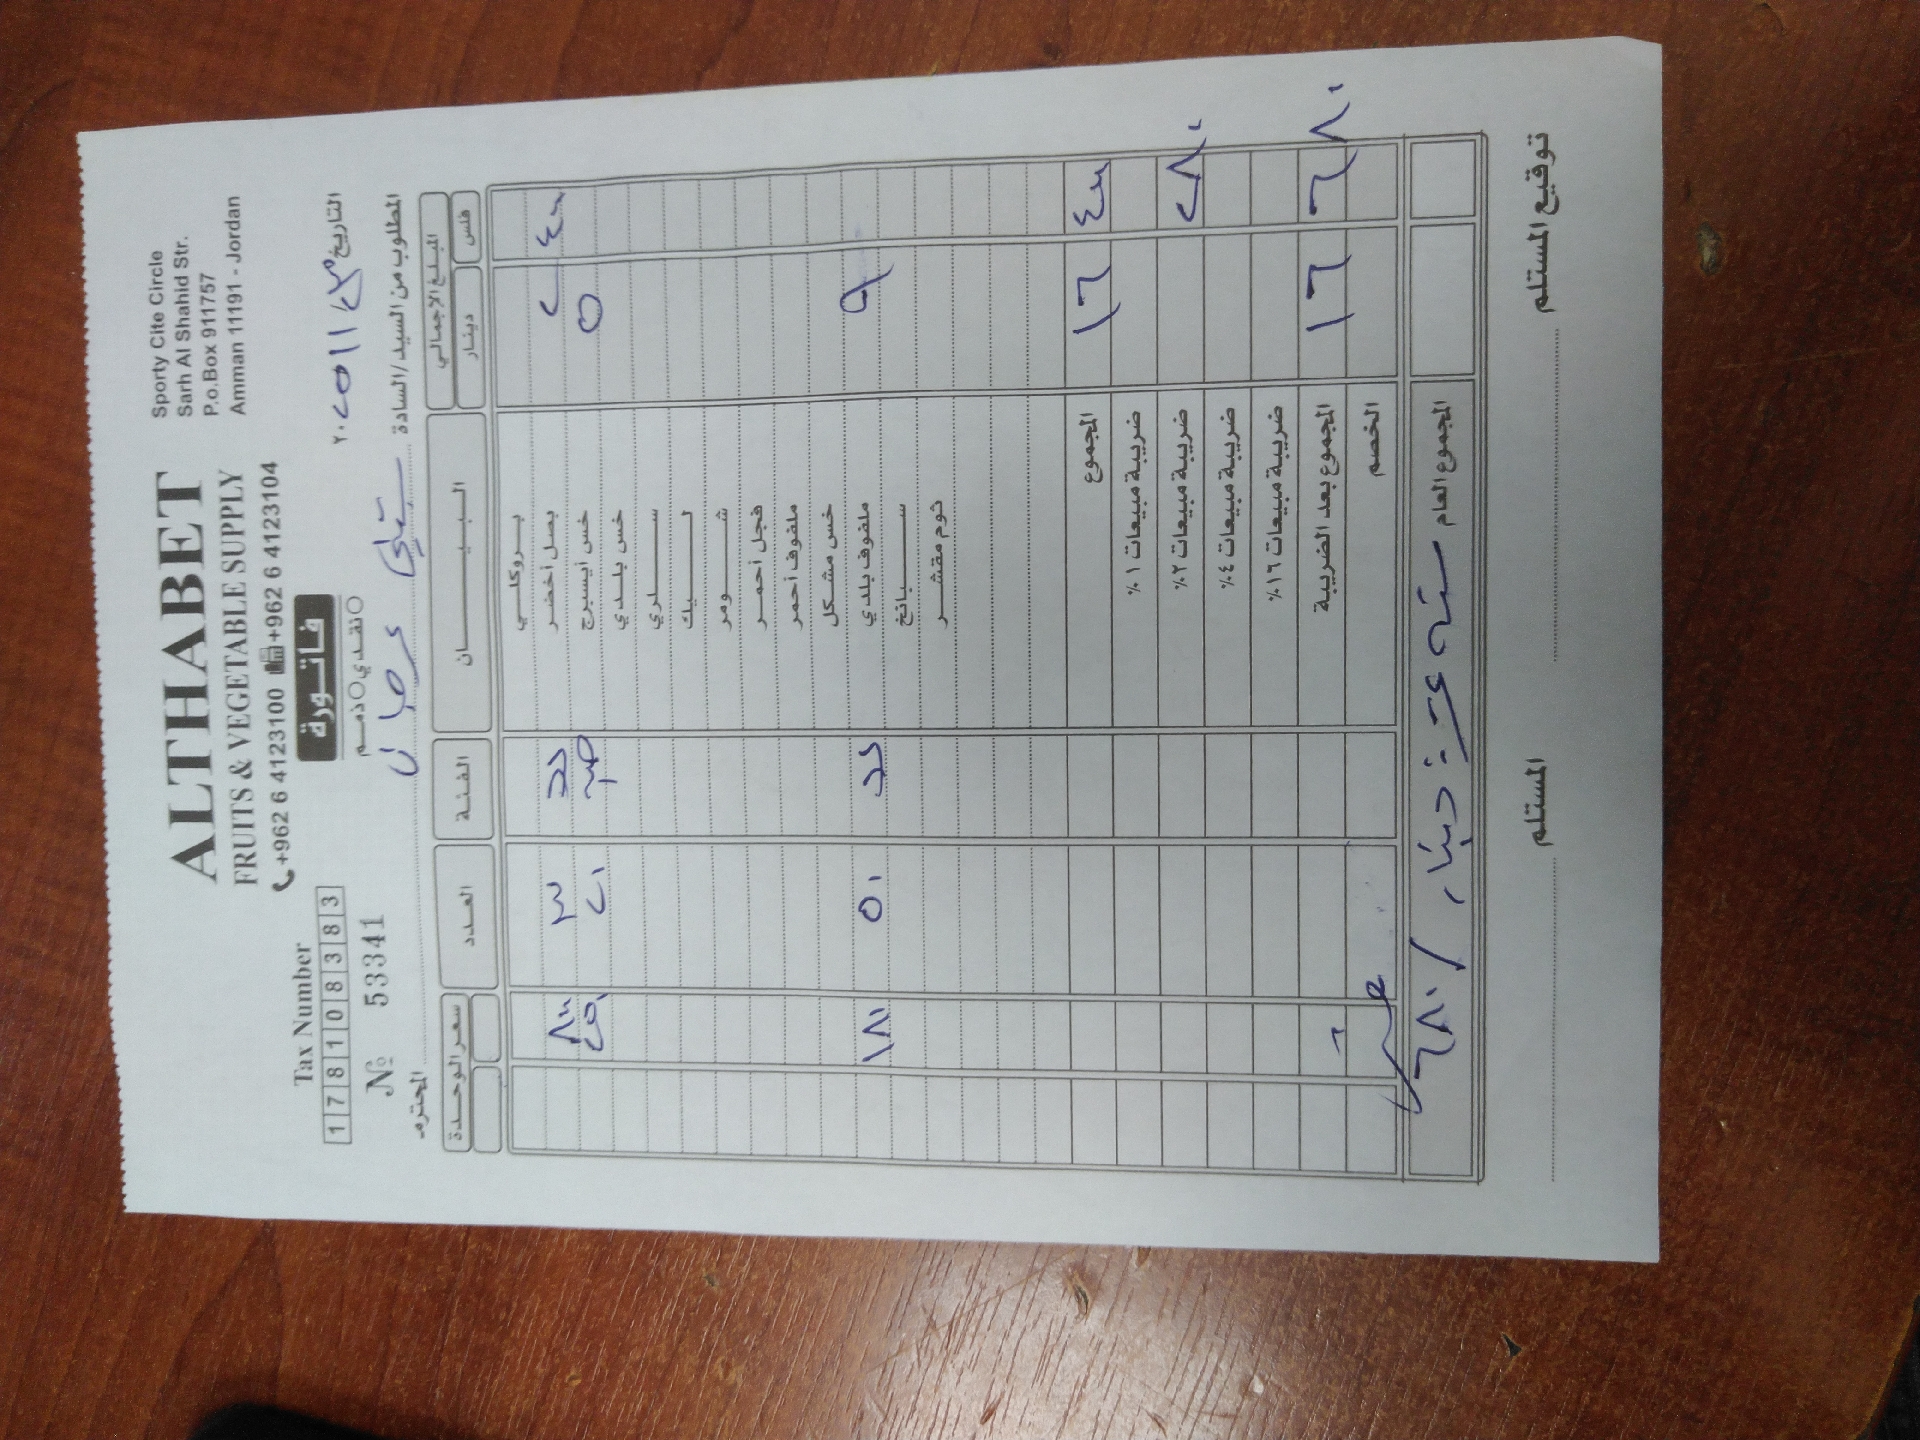 ALTHABET
FRUITS & VEGETABLE SUPPLY
+962 6 4123100 +962 6 4123104
Sporty Cite Circle
Sarh Al Shahid Str.
P.o.Box 911757
Amman 11191 - Jordan
Tax Number
1781108383
№ 53341
فاتورة
نقدي ذمم
التاريخ
المطلوب من السيد/السادة
المحترم
سعر الوحدة العدد الفئة البيان المبلغ الإجمالي
دينار فلس
بروكلي
بصل أخضر ٣
خس ايسبرج ٢٥٠ ٢٠ ٥
خس بلدي
سلري
ليك
شومر
فجل أحمر
ملفوف أحمر
خس مشكل
ملفوف بلدي ١٨٠ ٥٠ ٩
سبانخ
ثوم مقشر
المجموع ١٦ ٤٠٠
ضريبة مبيعات ١%
ضريبة مبيعات ٢% ٢٨٠
ضريبة مبيعات ٤%
ضريبة مبيعات ١٦%
المجموع بعد الضريبة ١٦ ٦٨٠
الخصم
المجموع العام ستة عشر دينار / ٦٨٠
المستلم
توقيع المستلم